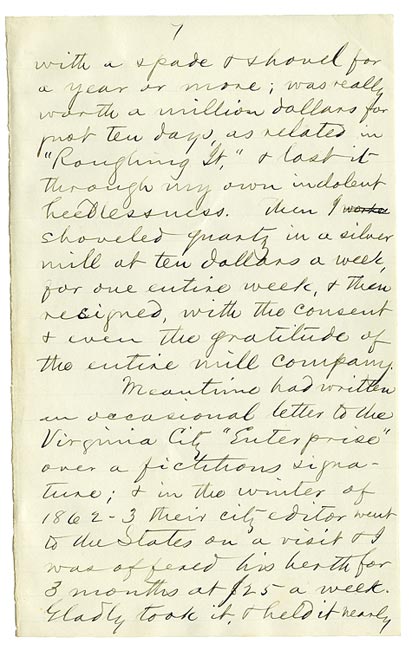 7
with a spade & shovel for
a year or more; was really
worth a million dollars for
just ten days, as related in
"Roughing It," & lost it
through my own indolent
heedlessness. Then I worked
shoveled quartz in a silver
mill at ten dollars a week,
for one entire week, & then
resigned, with the consent
& even the gratitude of
the entire mill company.
Meantime had written
an occasional letter to the
Virginia City "Enterprise"
over a fictitious signa-
ture; & in the winter of
1862-3 their city editor went
to the States on a visit & I
was offered his berth for
3 months at $25 a week.
Gladly took it, & held it nearly